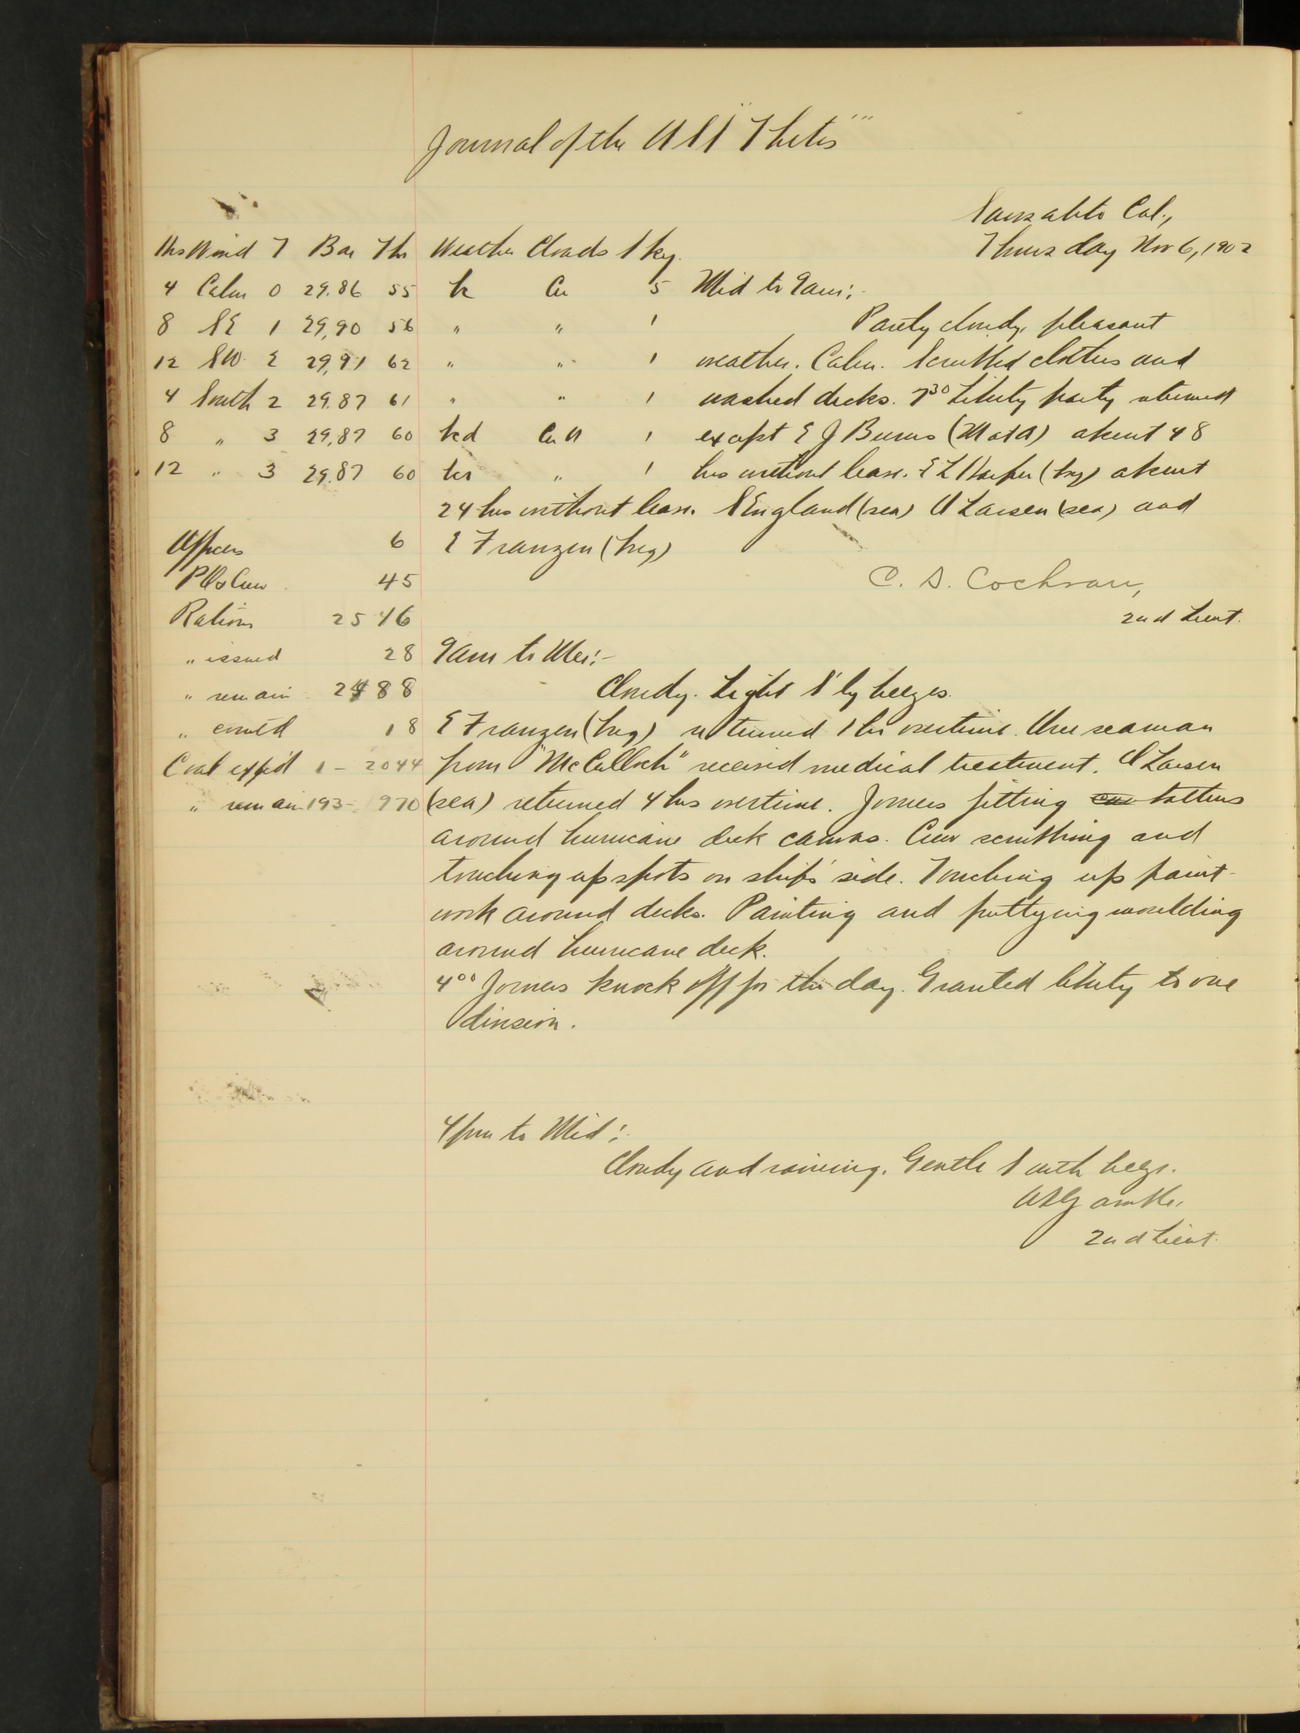 Journal of the USS "Thetis"
Sausalito Cal.,
Thursday Nov 6, 1902
Hrs Wind F Bar Thr Weather Clouds Sky
4 Calm 0 29.86 55 bc Cu 5 Mid to 9am:-
8 SE 1 29,90 56 " " 1 Partly cloudy, pleasant
12 SW 2 29,91 62 " " 1 weather. Calm. Scrubbed clothes and
4 South 2 29.87 61 " " 1 washed decks. 7 30 Liberty party returned
8 " 3 29,87 60 bcd Cu N 1 except E J Burns (M at A) absent 48
12 " 3 29.87 60 " 1 hrs without leave. E L (boy) absent
24 hrs without leave. S England (sea) A Larsen (sea) and
E Franzen (boy)
Officers 6
P.O. & Crew 45
C. S. Cochran,
2nd Lieut.
Rations 25 16
" issued 28
9am to Mer:-
" remain 2488
Cloudy. Light S'ly breezes.
" comtd 18
E Franzen (boy) returned 1 hr overtime. One seaman
Coal exp'd 1 - 2044
from "McCulloch" received medical treatment. A Larsen
" remain 193 - 970
(sea) returned 4 hrs overtime. Joiners fitting battens
around hurricane deck canvas. Crew scrubbing and
touching up spots on ship's side. Touching up paint-
work around decks. Painting and puttying moulding
around hurricane deck.
4 00 Joiners knock off for the day. Granted liberty to one
division.
4pm to Mid:-
Cloudy and raining. Gentle South breeze.
2nd Lieut.